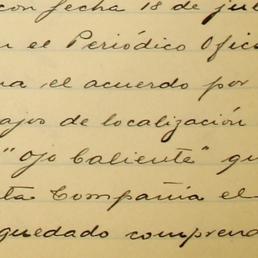 con fecha 18 de jul
n el Periódico Ofic
na el acuerdo por
ajos de localización
"Ojo Caliente" qu
ta Compañía el
quedado comprend